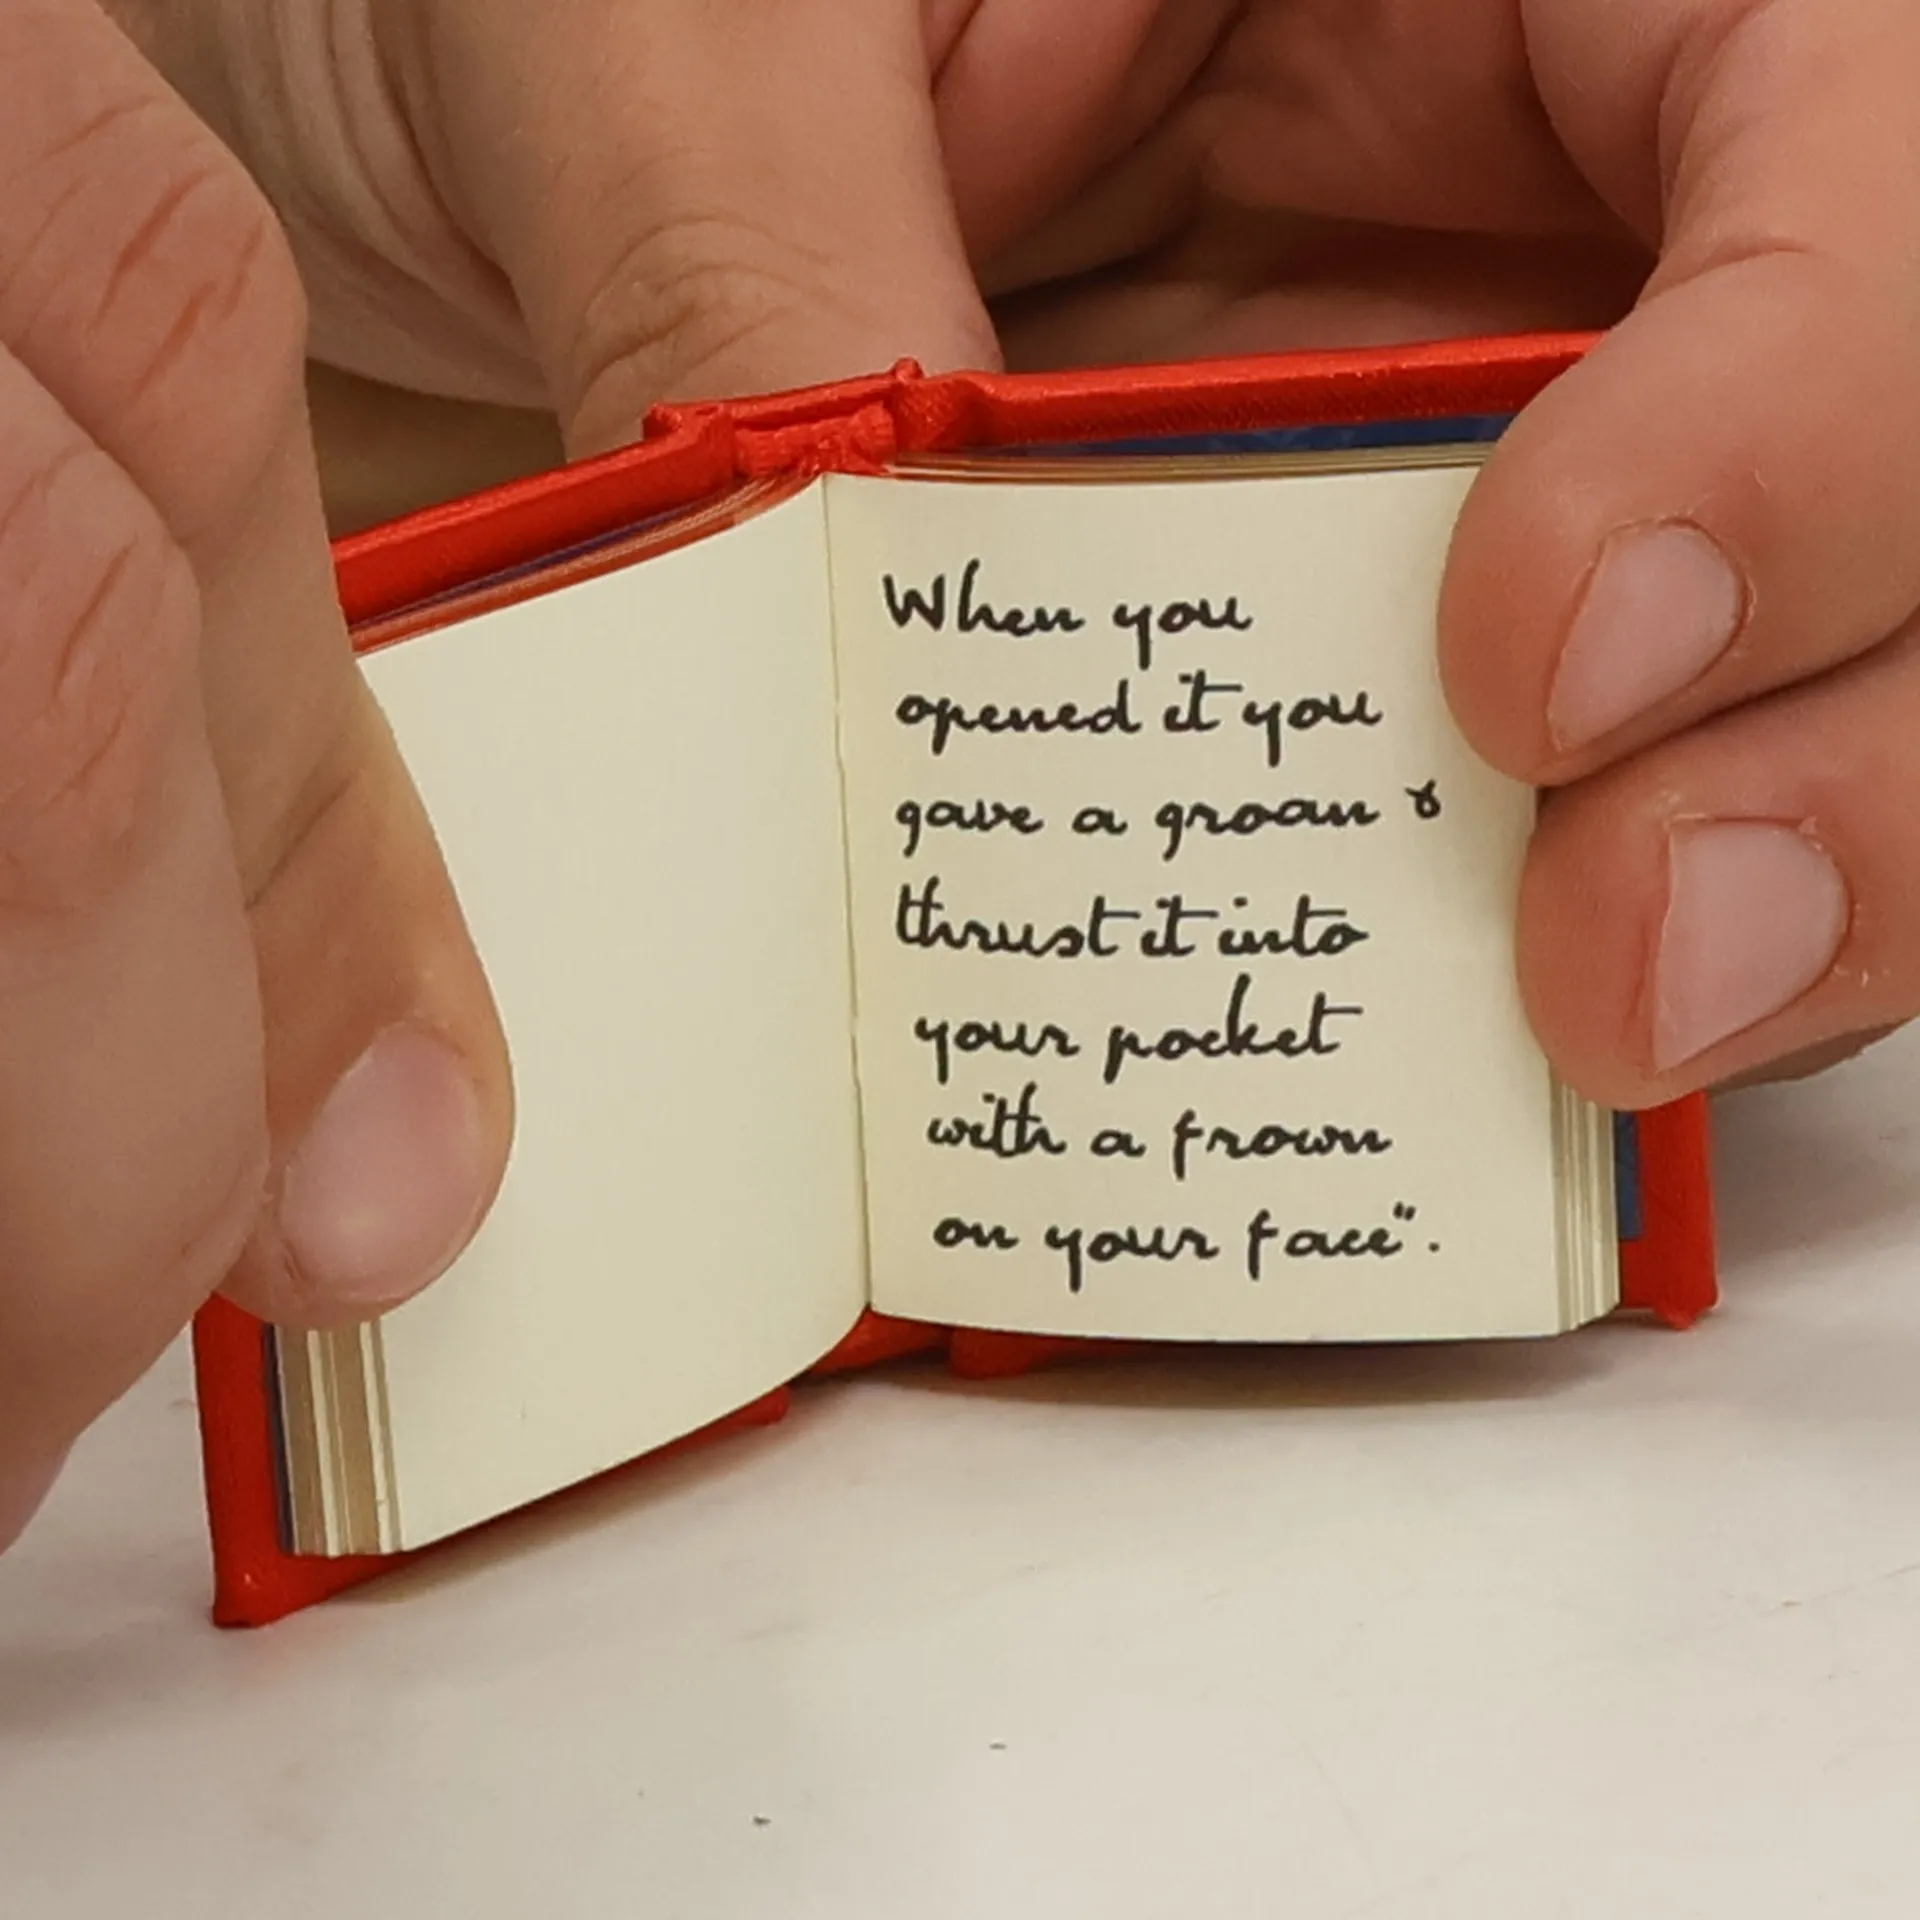 When you
opened it you
gave a groan &
thrust it into
your pocket
with a frown
on your face".